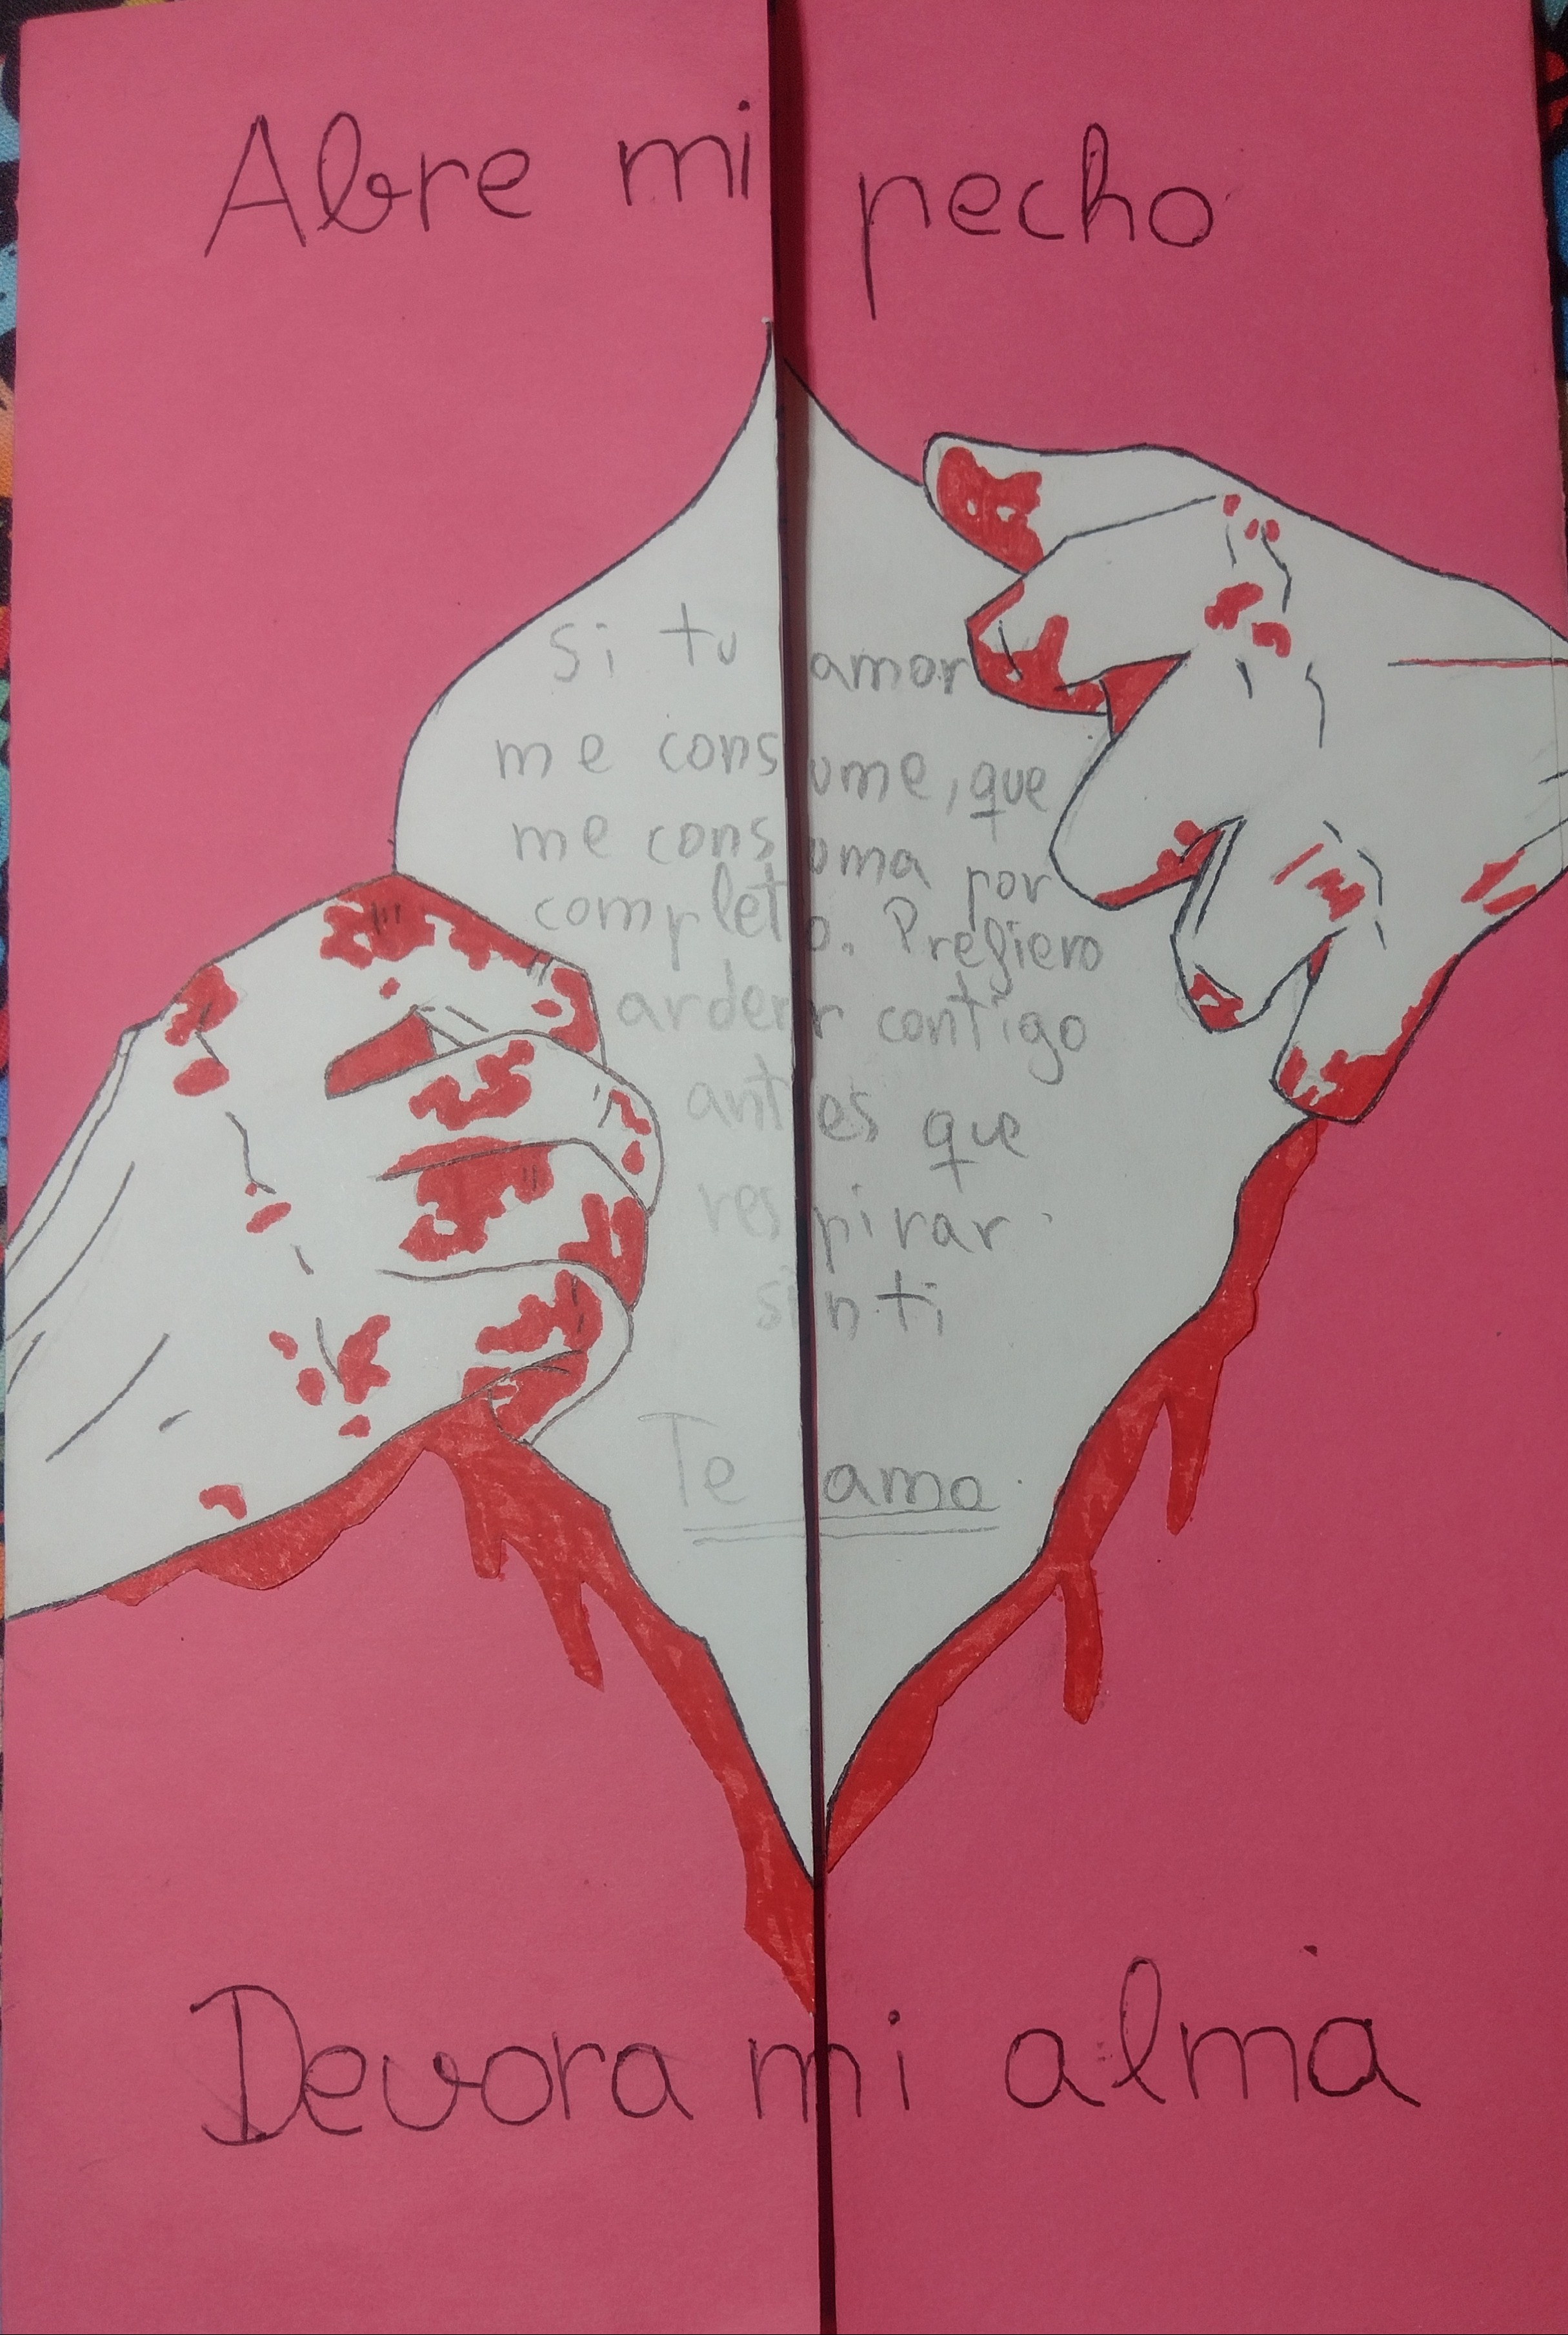 Abre mi pecho
si tu amor
me consume, que
me consuma por
completo. Prefiero
arder contigo
antes que
respirar
sin ti
Te amo
Devora mi alma